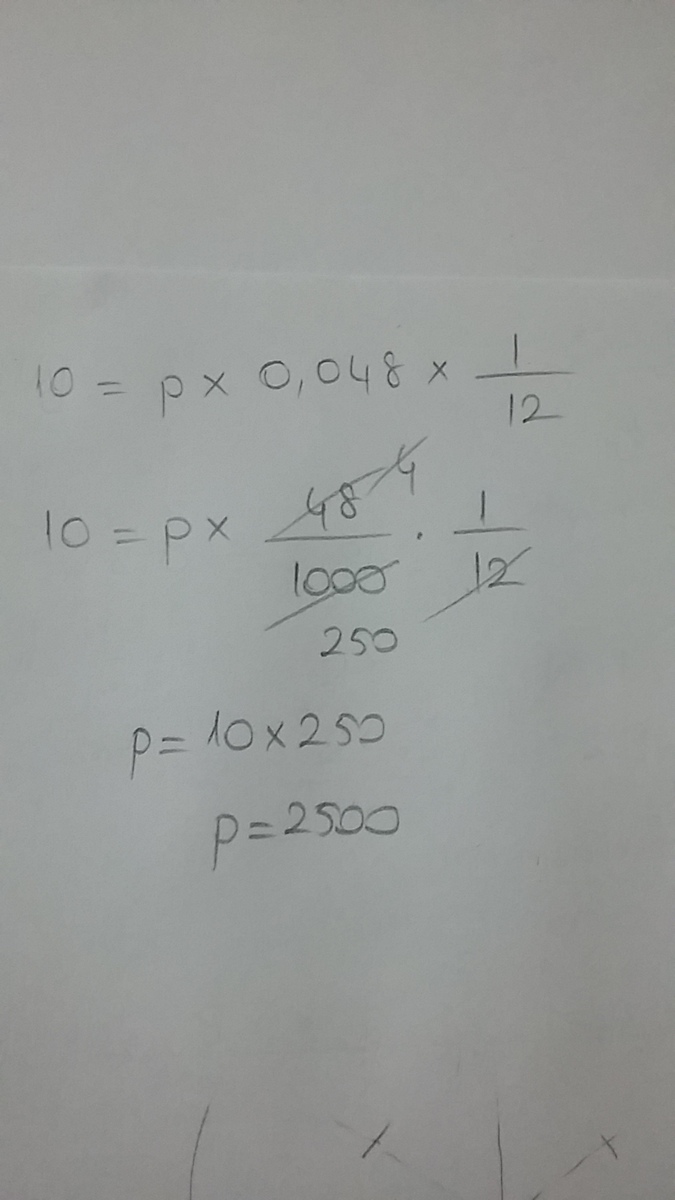 10 = p x 0,048 x 1/12
10 = p x 48/1000 · 1/12
4
250
p = 10 x 250
p = 2500